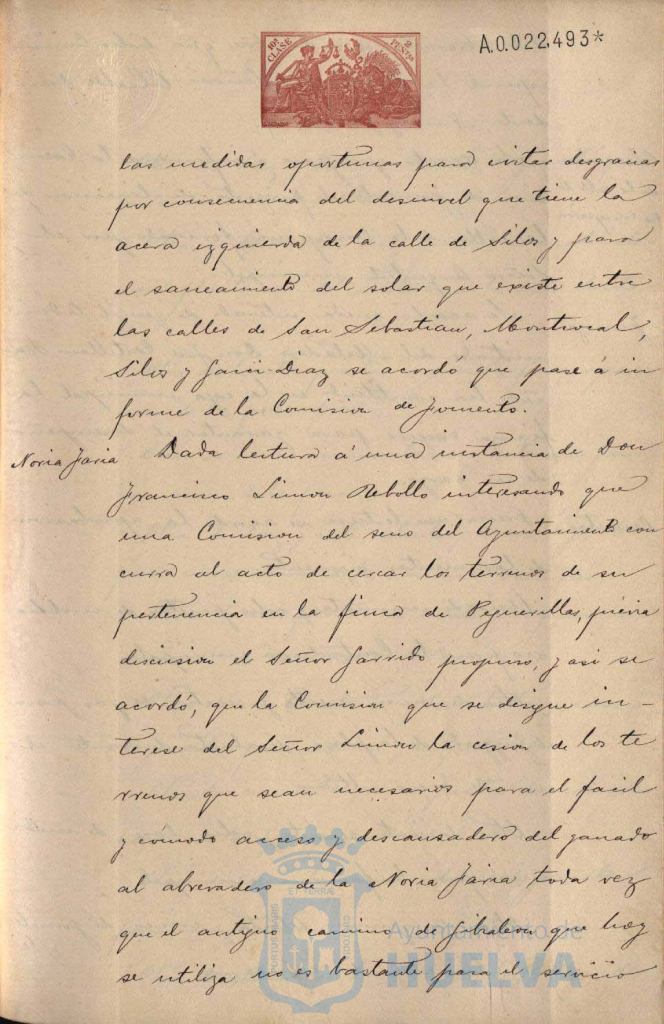 10ª CLASE 2 PESETAS
A.0.022,493*
las medidas oportunas para evitar desgracias
por consecuencia del desnivel que tiene la
acera izquierda de la calle de Silos y para
el saneamiento del solar que existe entre
las calles de San Sebastian, Montrocal,
Silos y Garci-Diaz se acordó que pase á in
forme de la Comision de Fomento.
Noria Jaria
Dada lectura á una instancia de Don
Francisco Limon Rebollo interesando que
una Comision del seno del Ayuntamiento con
curra al acto de cercar los terrenos de su
pertenencia en la finca de Peguerillas, previa
discusion el Señor Garrido propuso, y asi se
acordó, que la Comision que se designe in-
terese del Señor Limon la cesion de los te
rrenos que sean necesarios para el facil
y cómodo acceso y descansadero del ganado
al abrevadero de la Noria Jaria toda vez
que el antiguo camino de Gibraleon que hoy
se utiliza no es bastante para el servicio
Ayuntamiento de
HUELVA